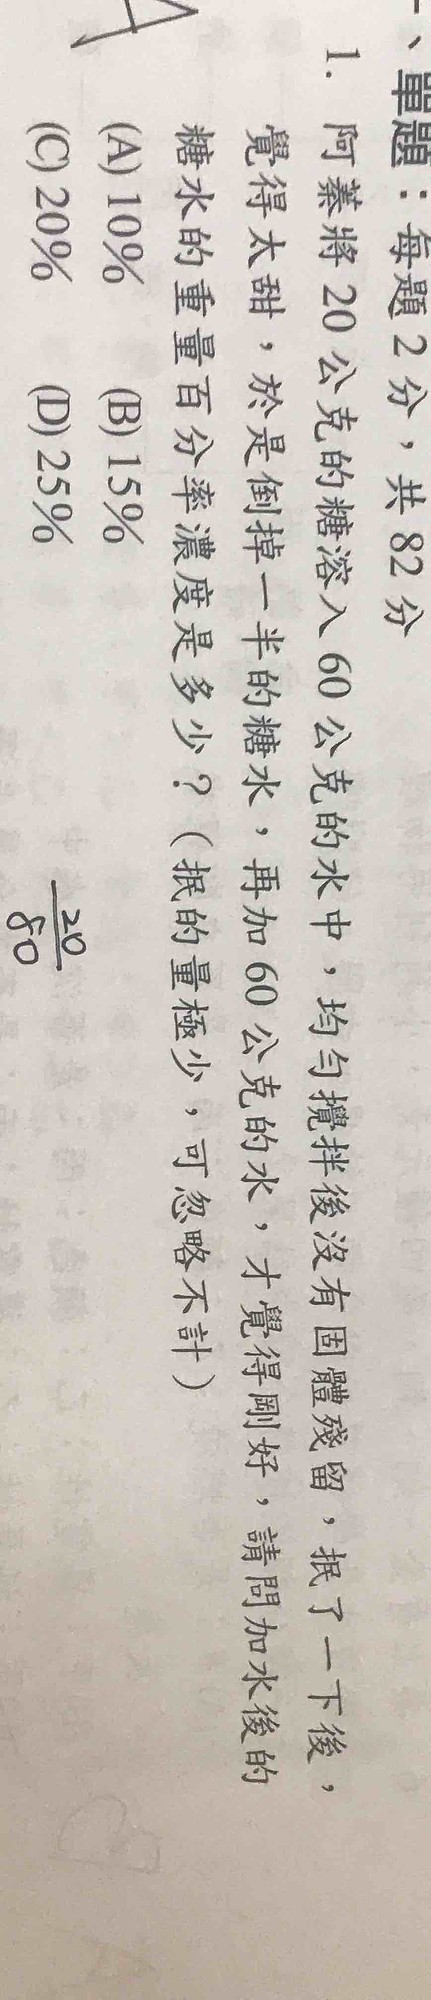 一、單題：每題 2 分，共 82 分
A
1. 阿蓁將 20 公克的糖溶入 60 公克的水中，均勻攪拌後沒有固體殘留，抿了一下後，
覺得太甜，於是倒掉一半的糖水，再加 60 公克的水，才覺得剛好，請問加水後的
糖水的重量百分率濃度是多少？（抿的量極少，可忽略不計）
(A) 10% (B) 15%
(C) 20% (D) 25%
20
80